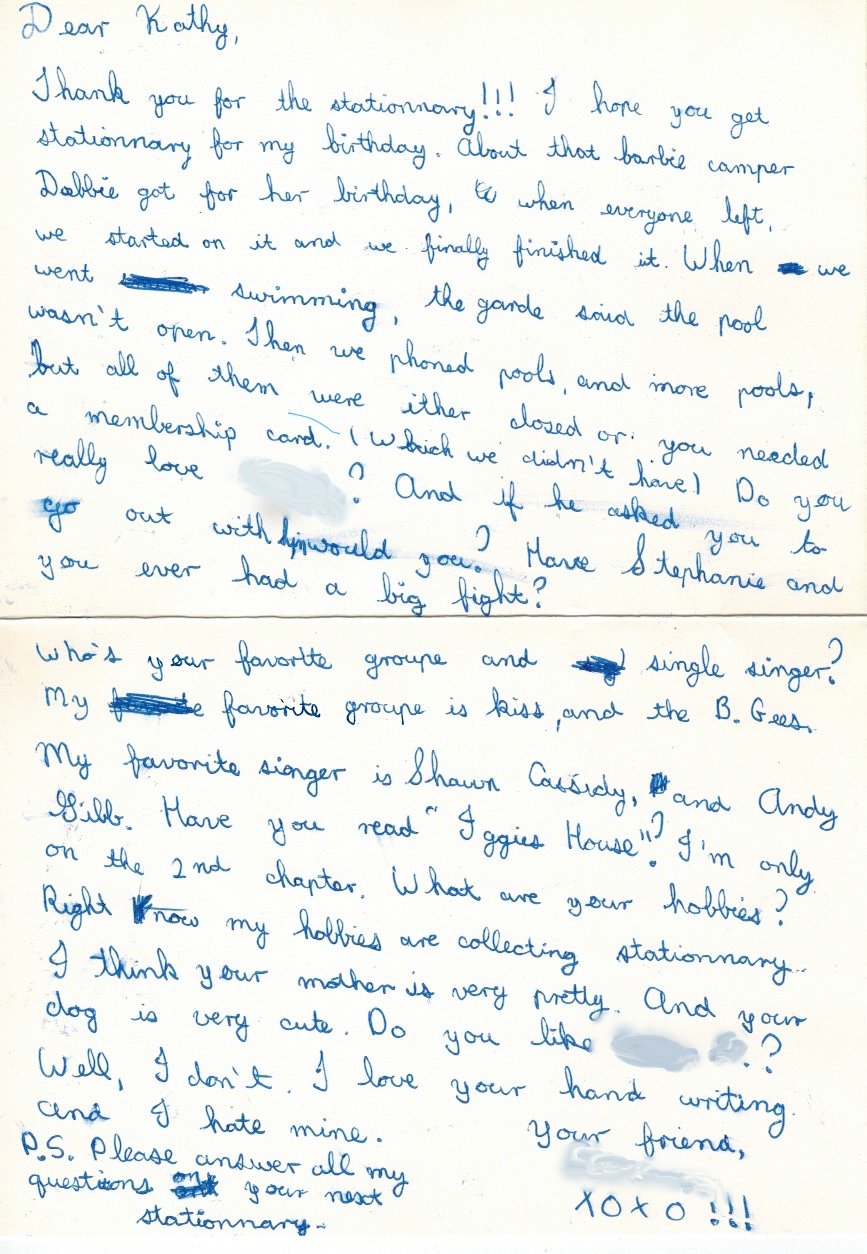 Dear Kathy,
Thank you for the stationnary!!! I hope you get
stationnary for my birthday. About that barbie camper
Debbie got for her birthday, when everyone left,
we started on it and we finally finished it. When we
went swimming, the garde said the pool
wasn't open. Then we phoned pools, and more pools,
but all of them were ither closed or you needed
a membership card. (Which we didn't have) Do you
really love ? And if he asked you to
go out with him would you? Have Stephanie and
you ever had a big fight?
Who's your favorite groupe and single singer?
My favorite groupe is kiss, and the B. Gees.
My favorite singer is Shawn Cassidy, and Andy
Gibb. Have you read "Iggies House"? I'm only
on the 2nd chapter. What are your hobbies?
Right now my hobbies are collecting stationnary..
I think your mother is very pretty. And your
dog is very cute. Do you like ?
Well, I don't. I love your hand writing.
and I hate mine.
Your friend,
XOXO !!!
P.S. Please answer all my
questions on your next
stationnary.